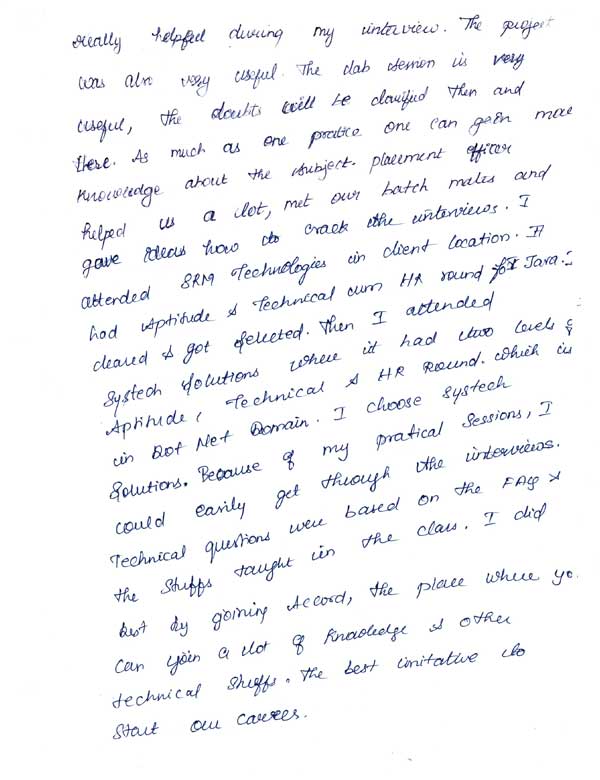 really helpful during my interview. The project
was also very useful. The lab session is very
useful, the doubts will be clarified then and
there. As much as one pratice one can gain more
knowledge about the subject. placement officer
helped us a lot, met our batch mates and
gave ideas how to crack the interviews. I
attended SRM Technologies in client location. It
had Aptitude & Technical cum HR round for Java. I
cleared & got selected. Then I attended
Systech Solutions where it had two levels
Aptitude, Technical & HR Round. which is
in Dot Net Domain. I choose Systech
Solutions. Because of my pratical Sessions, I
could easily get through the interviews.
Technical questions were based on the FAQ &
the stuffs taught in the class. I did
best by joining Accord, the place where yo
can gain a lot of knowledge & other
technical stuffs. The best initative to
start our career.